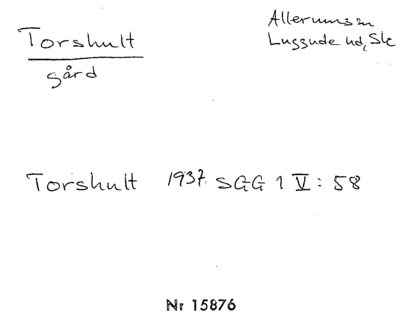 Torshult
gård
Allerums sn
Luggude hd, Sk
Torshult 1937 SGG 1 V: 58
Nr 15876